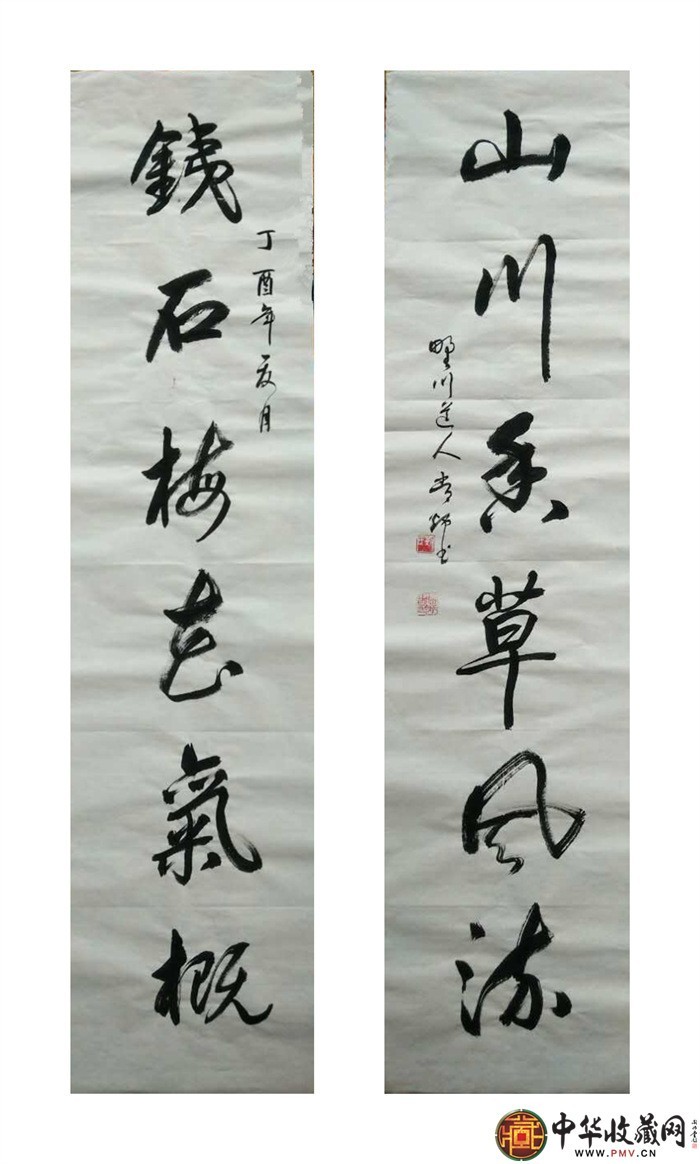 銕石梅花氣概
丁酉年夏月
山川香草风流
野川道人书
中华收藏网
WWW.PMV.CN